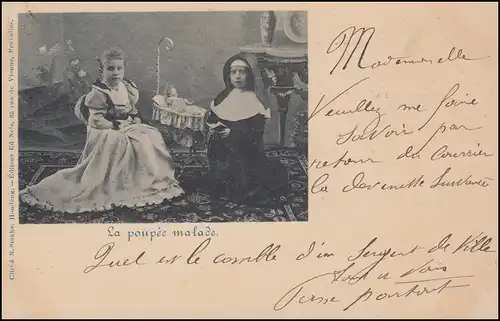 Cliché N. Sizaire, Houdeng. — Éditeur Ed. Nels, 25 rue de Vienne, Bruxelles.
La poupée malade.
Mademoiselle
Veuillez me faire
savoir par
retour du courrier
la devinette suivante
Quel est le comble d'un Sergent de Ville